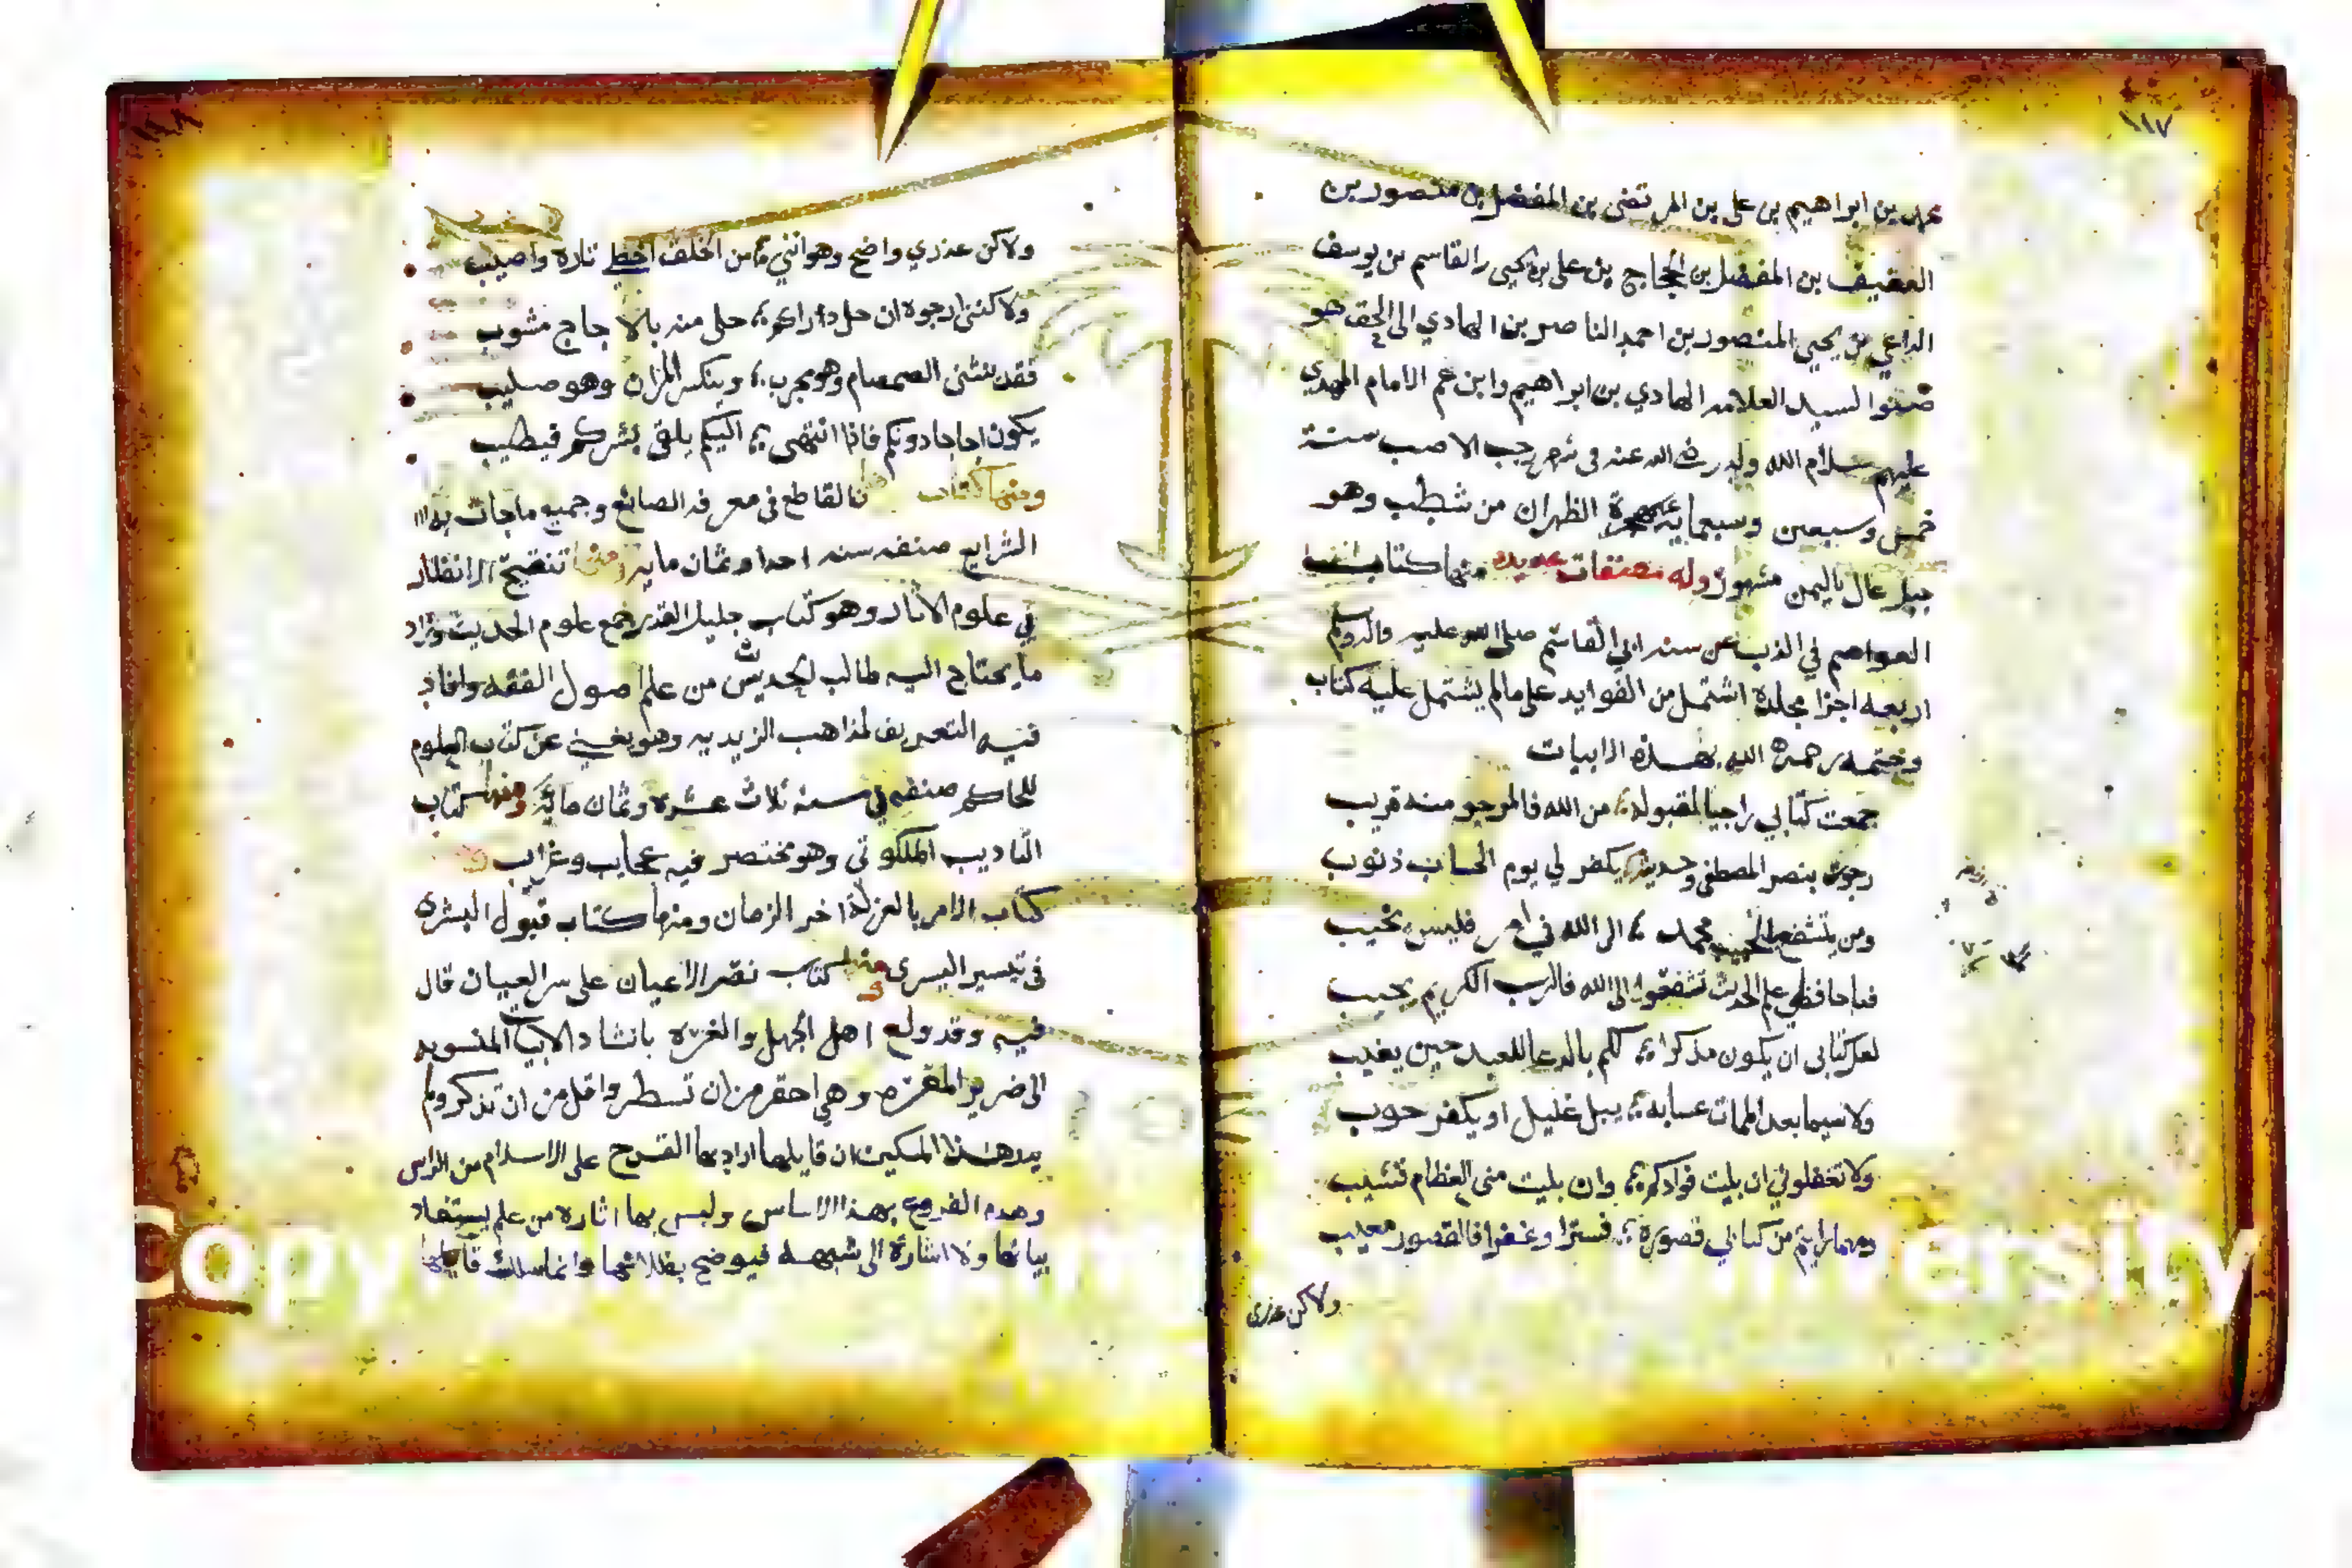 ١١٧
محمد بن ابراهيم بن علي بن المرتضى بن المفضل بن منصور بن
العفيف بن المفضل بن الحجاج بن علي بن يحيى القاسم بن يوسف
الداعي بن يحيى المنصور بن احمد الناصر بن الهادي الى الحق هو
صنو السيد العلامه الهادي بن ابراهيم وابن عم الامام المهدي
عليهم سلام الله ولد رضي الله عنه في شهر رجب الاصب سنة
خمس وسبعين وسبعمايه الظهران من شطب وهو
جبل عال باليمن مشهور وله مصنفات عديده منها كتاب
العواصم في الذب عن سنه ابي القاسم صلى الله عليه واله وسلم
اربعه اجزا مجلدة اشتمل من الفوايد على مالم يشتمل عليه كتاب
وختمه رحمة الله بهذه الابيات
جمعت كتابي راجيا لقبوله من الله فالمرجو منه قريب
رجوت بنصر المصطفى وحديثه يكفر لي يوم الحساب ذنوب
ومن يتشفع بالحبيب محمد الى الله في امر فليس يخيب
فيا حافظي علم الحديث تشفعوا الى الله فالرب الكريم يجيب
لعل كتابي ان يكون مذكرا لكم بالدعا للعبد حين يغيب
ولا سيما بعد الممات عسابه يبل غليل او يكفر حوب
ولا تغفلوني ان بليت فوادكم وان بليت مني العظام تشيب
ومهما رايتم من كتابي قصوره فسترا وغفرا فالقصور معيب
ولاكن عذري
ولاكن عذري واضح وهو انني من الخلف اخطي تاره واصيب
ولاكنني ارجوه ان حل داركم حلى منه بالاجاج مشوب
فقد ينثنى الصمصام وهو مجرب وينكسر المران وهو صليب
يكون اجاجا دونكم فاذا انتهى اليكم يلقى نشركم فيطيب
ومنها كتاب القاطع في معرفه الصانع وجميع ماجات به
الشرايع صنفه سنه احدا وثمان مايه ومنها تنقيح الانظار
في علوم الاثار وهو كتاب جليل القدر جمع علوم الحديث وزاد
ما يحتاج اليه طالب الحديث من علم اصول الفقه وافاد
فيه التعريف لمذاهب الزيديه وهو يغني عن كتاب العلوم
للحاكم صنفه في سنه ثلاث عشره وثمان مايه ومنها كتاب
التاديب الملكوتي وهو مختصر فيه عجايب وغرايب
كتاب الامر بالعزلة اخر الزمان ومنها كتاب قبول البشرى
في تيسير اليسرى ومنها كتاب نصر الاعيان على سر العميان قال
فيه وقد ولع اهل الجهل والغرة بانشاد الابيات المنسوبه
الى ضرير المعره وهي احقر من ان تسطر واقل من ان تذكر ولم
يدر هذا المسكين ان قايلها اراد بها القدح على الاسلام من الراس
وهدم الفروع بهذا الاساس وليس بها اثاره من علم يستفاد
بيانها ولا اشارة الى شبهه فيوضح بطلانها وانما سلك قايلها